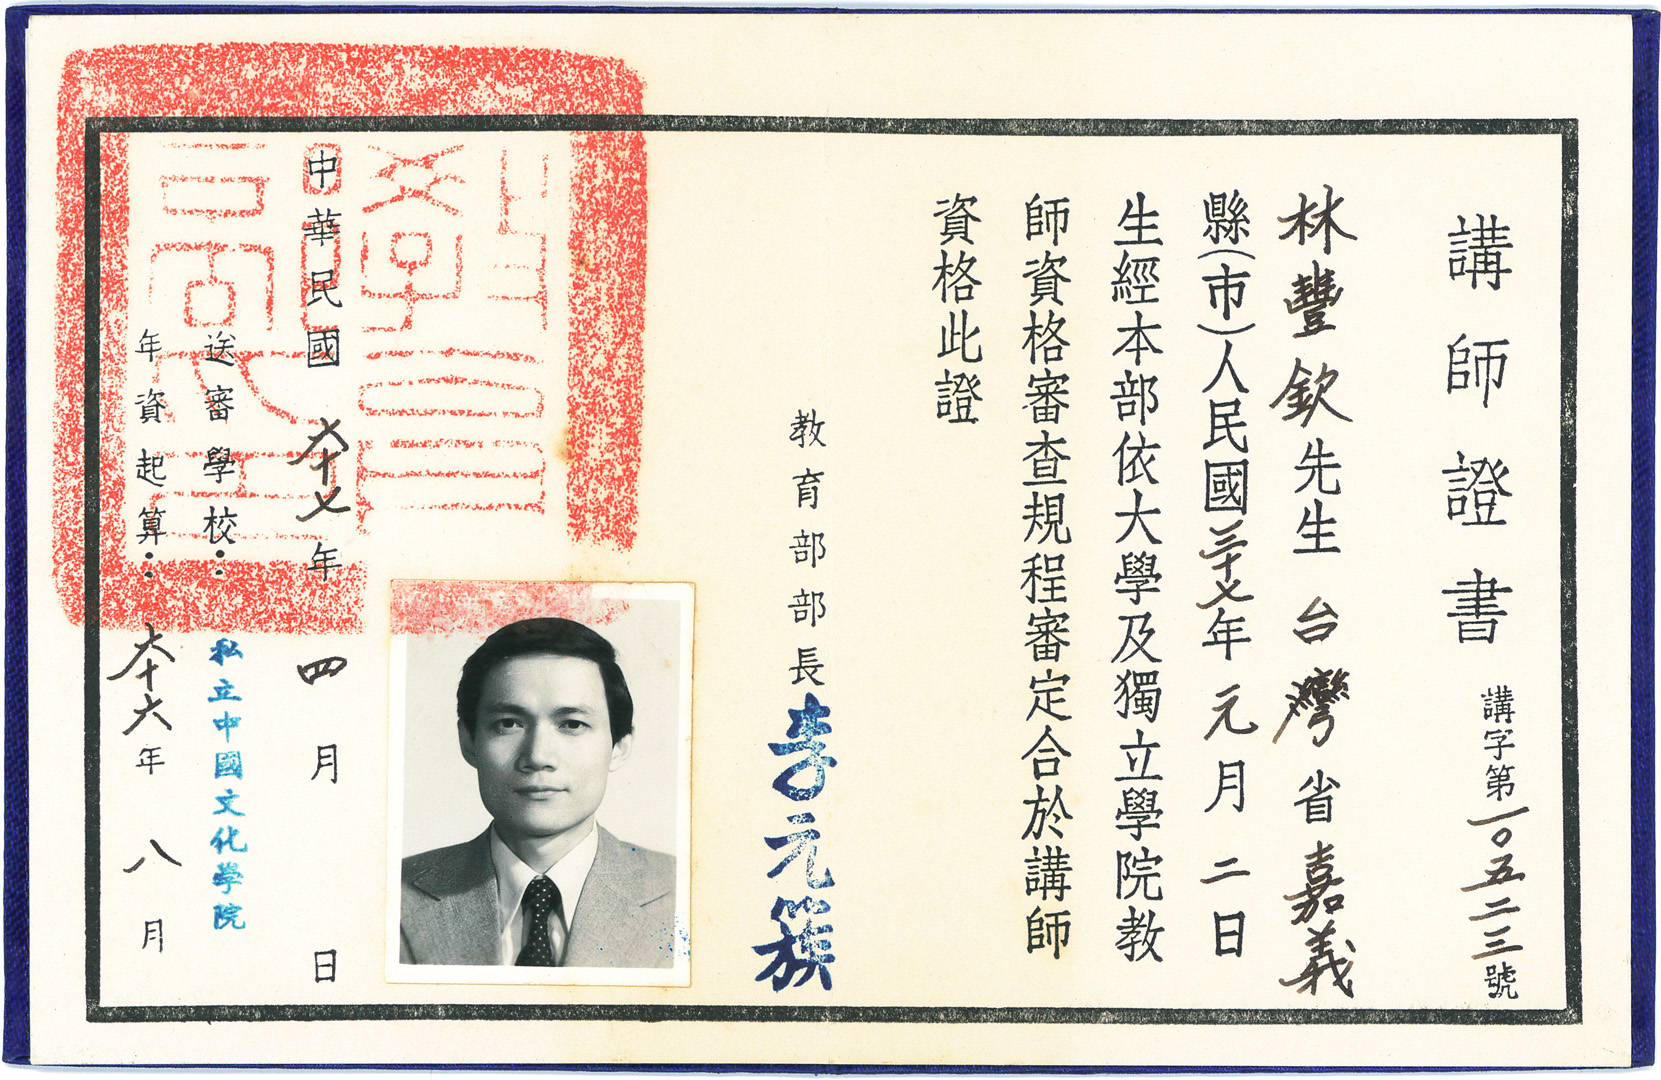 講師證書
講字第一〇五二二三號
林豐欽先生 台灣省嘉義
縣(市)人民國三十七年元月二日
生經本部依大學及獨立學院教
師資格審查規程審定合於講師
資格此證
教育部部長李元簇
中華民國六十七年四月 日
送審學校：私立中國文化學院
年資起算：六十六年八月